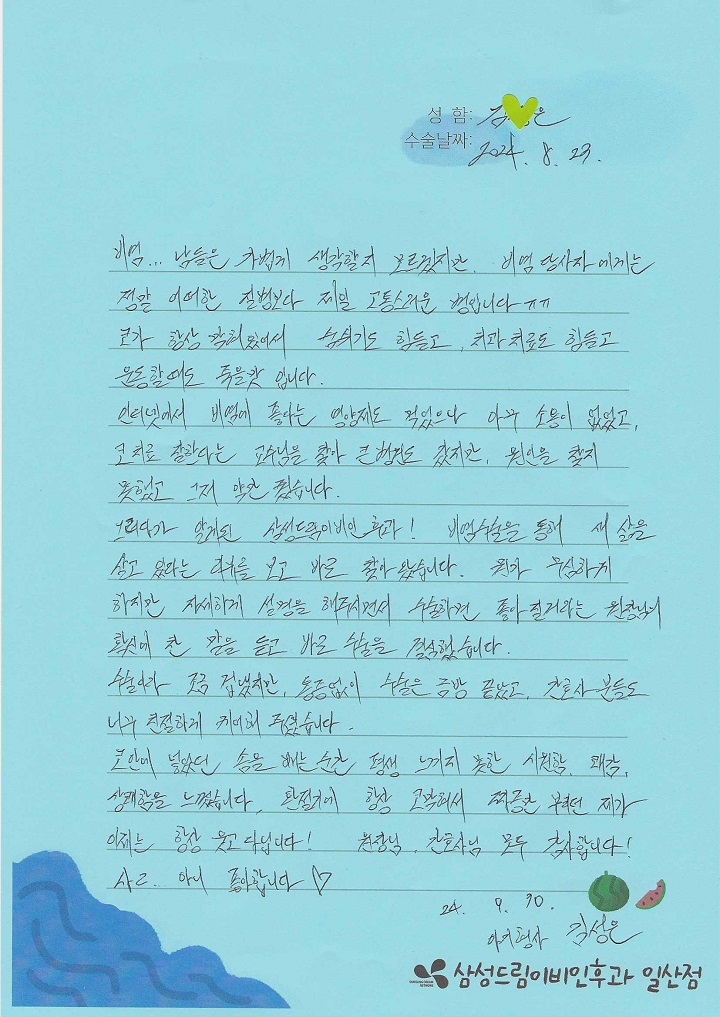 성 함: 김 은
수술날짜: 2024. 8. 23.
비염... 남들은 가볍게 생각할지 모르겠지만. 비염 당사자에게는
정말 어떠한 질병보다 제일 고통스러운 병입니다 ㅠㅠ
코가 항상 막혀있어서 숨쉬기도 힘들고, 치과치료도 힘들고
운동할때도 죽을맛 입니다.
인터넷에서 비염에 좋다는 영양제도 먹었으나 아무 소용이 없었고,
코치료 잘한다는 교수님을 찾아 큰병원도 갔지만, 원인을 찾지
못했고 그저 약만 줬습니다.
그러다가 알게된 삼성드림이비인후과! 비염수술을 통해 새 삶을
살고 있다는 리뷰를 보고 바로 찾아왔습니다. 뭔가 무심하게
하지만 자세하게 설명을 해주시면서 수술하면 좋아질거라는 원장님의
확신에 찬 말을 듣고 바로 수술을 결심했습니다.
수술하기 조금 겁났지만, 통증없이 수술은 금방 끝났고, 간호사분들도
너무 친절하게 케어해 주셨습니다.
코안에 넣었던 솜을 빼는 순간 평생 느끼지 못한 시원함. 쾌감,
상쾌함을 느꼈습니다. 환절기에 항상 코막혀서 짜증만 부렸던 제가
이제는 항상 웃고 다닙니다! 원장님, 간호사님 모두 감사합니다!
사ㄹ.. 아니 좋아합니다 ♡
24. 9. 30.
김성은
삼성드림이비인후과 일산점